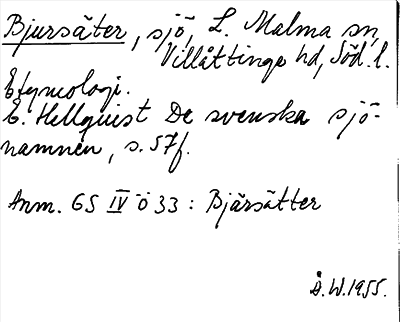 Bjursäter, sjö, L. Malma sn,
Villåttinge hd, Söd. l.
Etymologi.
E. Hellquist De svenska sjö-
namnen, s. 57f.
Anm. GS IV Ö 33 : Bjärsätter
Å.W.1955.